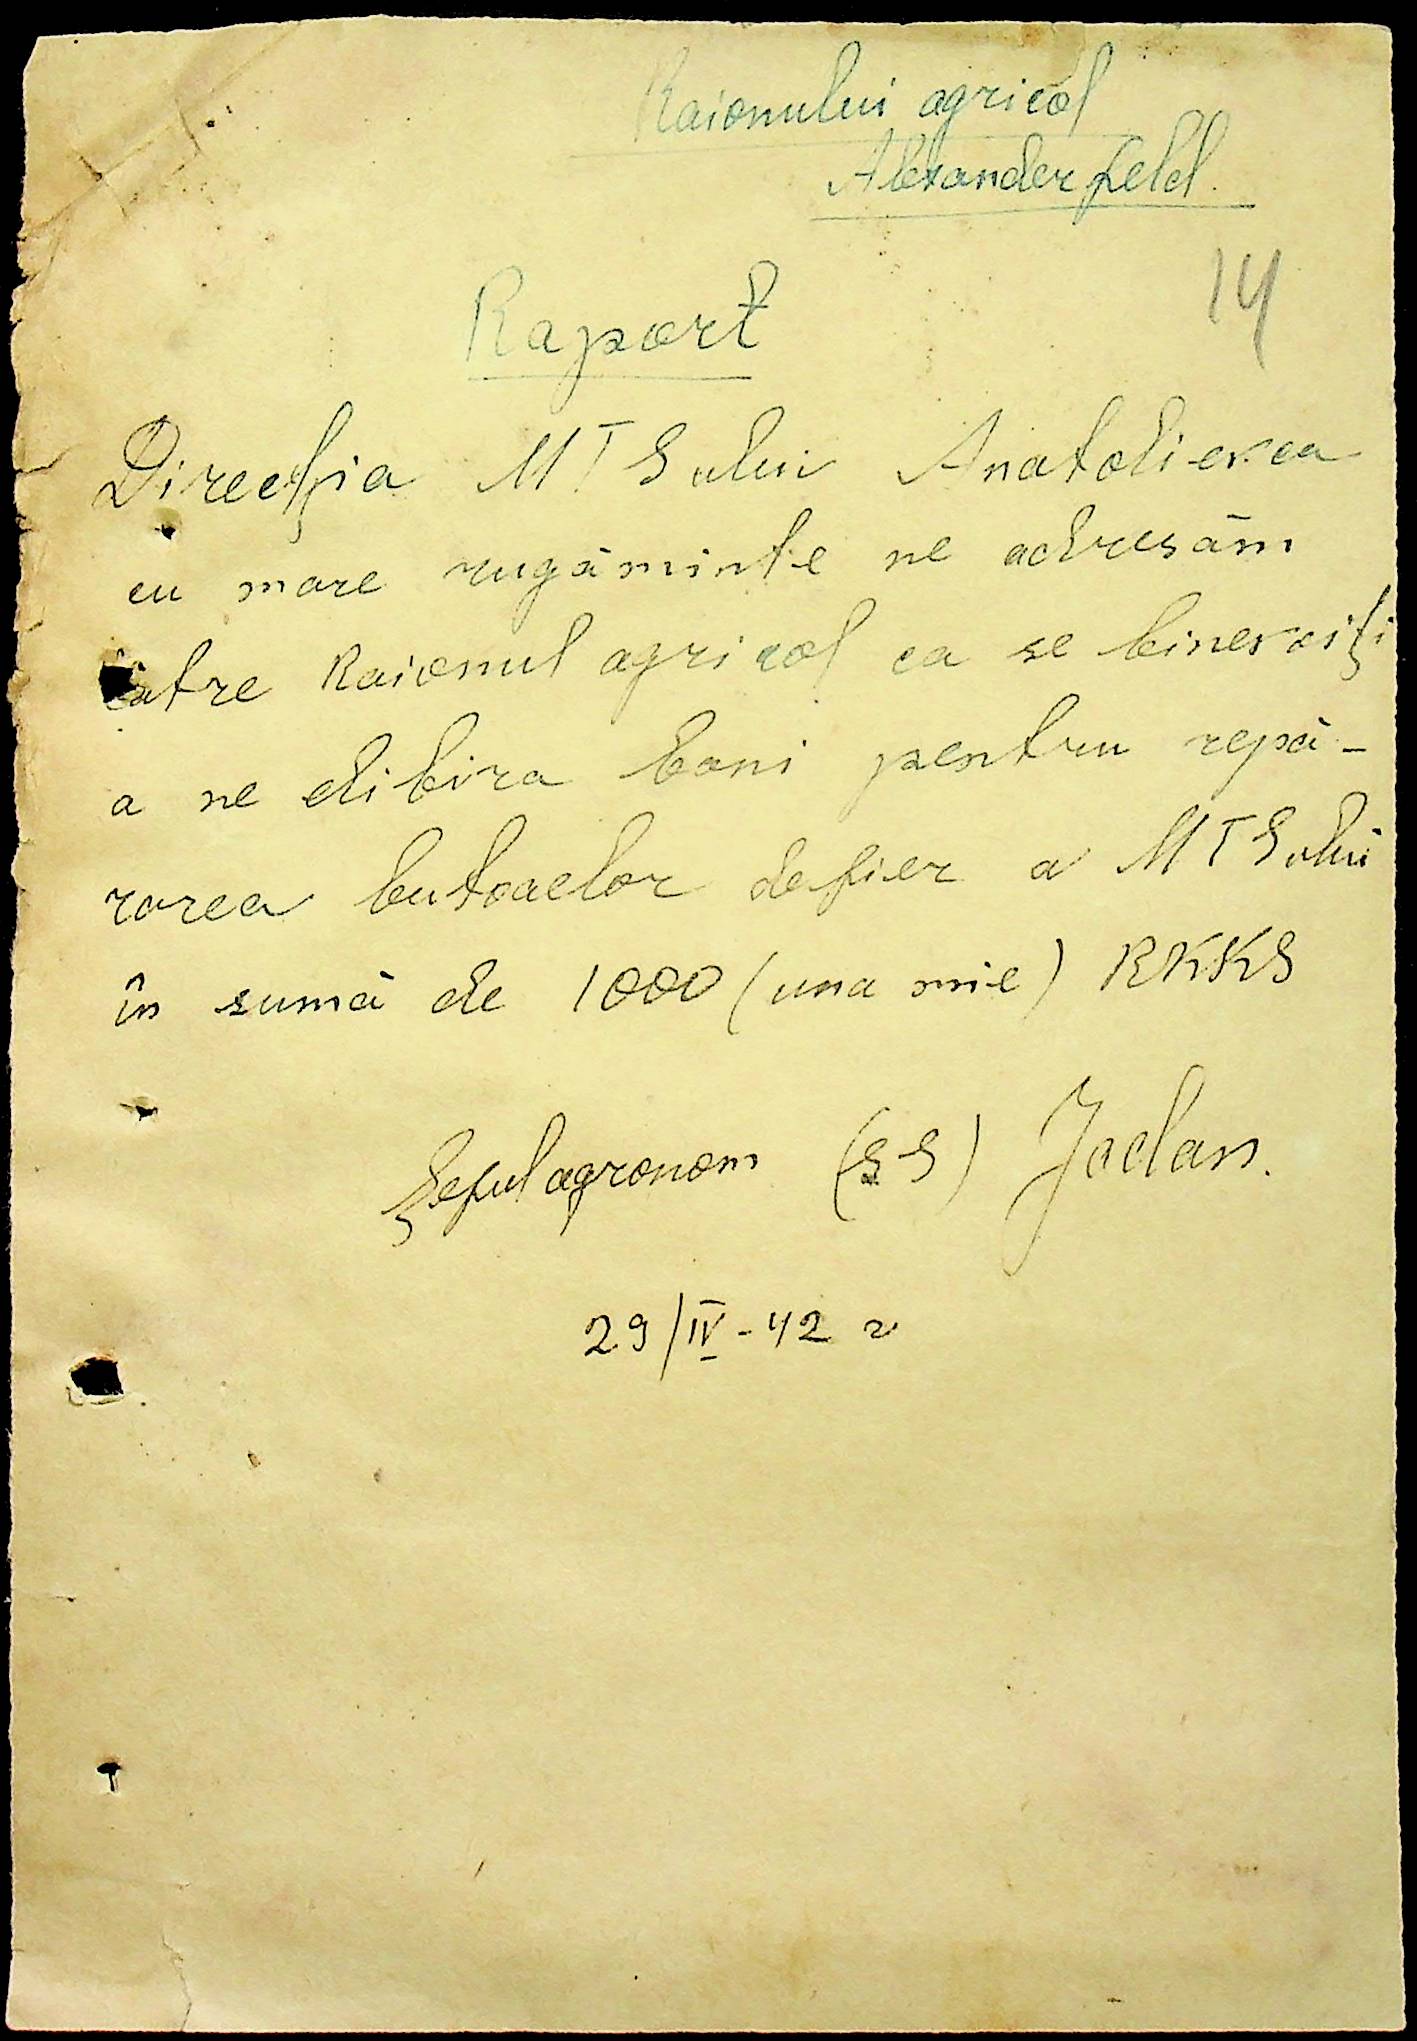 Raionului agricol
Alexanderfeld.
14
Raport
Direcţia MTSului Anatolievca
cu mare rugăminte ne adresăm
către Raionul agricol ca se binevoiţi
a ne elibira bani pentru repă-
rarea butoaelor defier a MTSului
în sumă de 1000 (una mie) RKKS
Şeful agronom (ss) Jodan.
29/IV-42 г